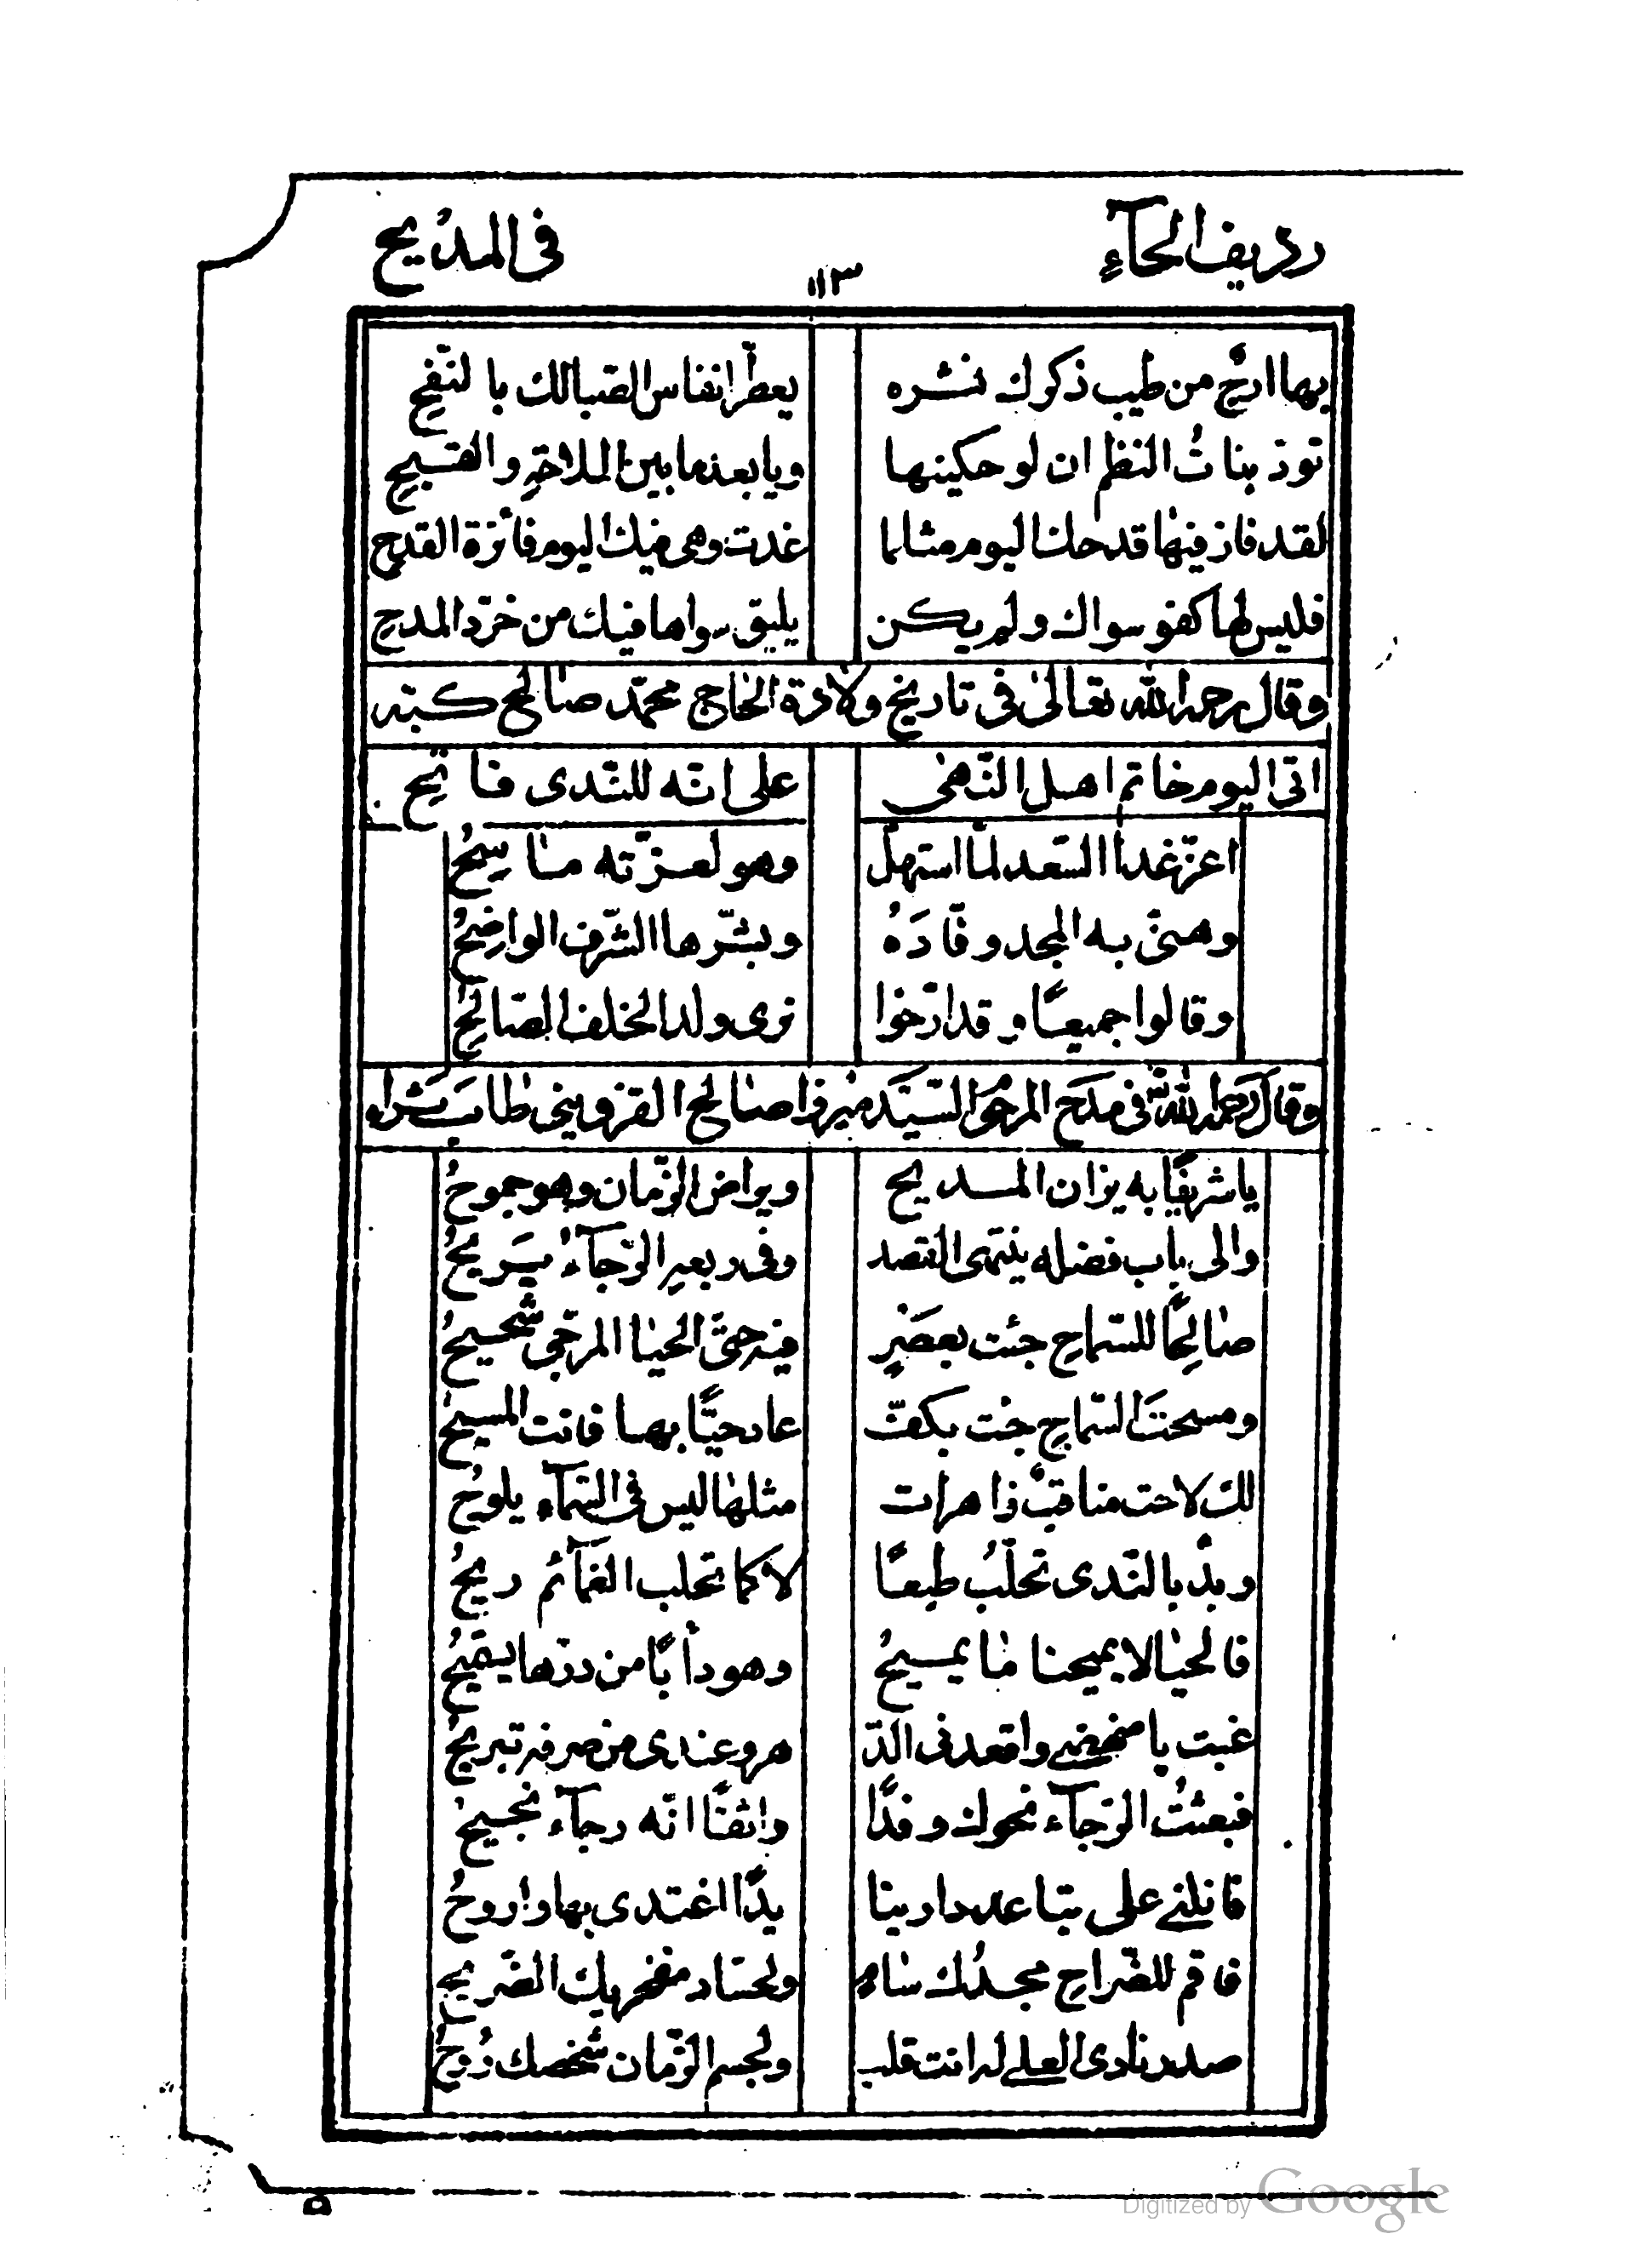 رديف الحآء
١١٣
في المديح
بها ارج من طيب ذكرك نشره يعطر انفاس الصبا لك بالنفح
تود بنات النظم ان لو حكينها ويا بعد ما بين الملاحة والقبح
لقد فاز فيها قدحك اليوم مثلما غدت وهي فيك اليوم فائزة القدح
فليس لها كفو سواك ولم يكن يليق سواها فيك من خرّد المدح
وقال رحمه الله تعالى في تاريخ ولادة الحاج محمّد صالح كبّه
اتى اليوم خاتم اهل النّهى على انّه للنّدى فاتح
اعزّ غدا السّعد لمّا استهلّ وهو لعزّته ماسح
وهنّى به المجد وفّادَهُ وبشّرها الشّرف الواضحُ
وقالوا جميعًا وقد ارّخوا نرى ولد الخلف الصّالحُ
وقال رحمه الله في مدح المرحوم السّيّد ميرزا صالح القزويني طاب ثراه
يا شريفًا به يزان المديح ويراض الزّمان وهو جموحُ
والى باب فضله ينتمى القصد وفي ربعه الرّجآءُ يسريحُ
صالحًا للسّماح جئت بعصرٍ فيه حتّى الحيا المرجّى شحيحُ
ومسحت السّماح جئت بكفّ عاد حيًّا بها فانت المسيحُ
لك لاحت مناقبٌ زاهرات مثلها ليس في السّمآء يلوحُ
ويدٌ بالنّدى تحلّبُ طبعًا لا كما تحلب الغمآئم ريحُ
فالحيا لا يميحنا ما يميحُ وهو دأبًا من درّها يستميحُ
غبت يا منهضي واقعدني الدّ هر وعندي من صرفه تبريحُ
فبعثتُ الرّجآء نحوك وفدًا واثقًا انّه رجآء نجيحُ
فانلني على تباعد دارينا يدًا اغتدى بها واروحُ
فاقم للضّراح مجدُك سام ولحسّاد مفخريك الضّريح
صدر نادى العلى له انت قلب ولجسم الزّمان شخصك رُوحُ
Digitized by Google